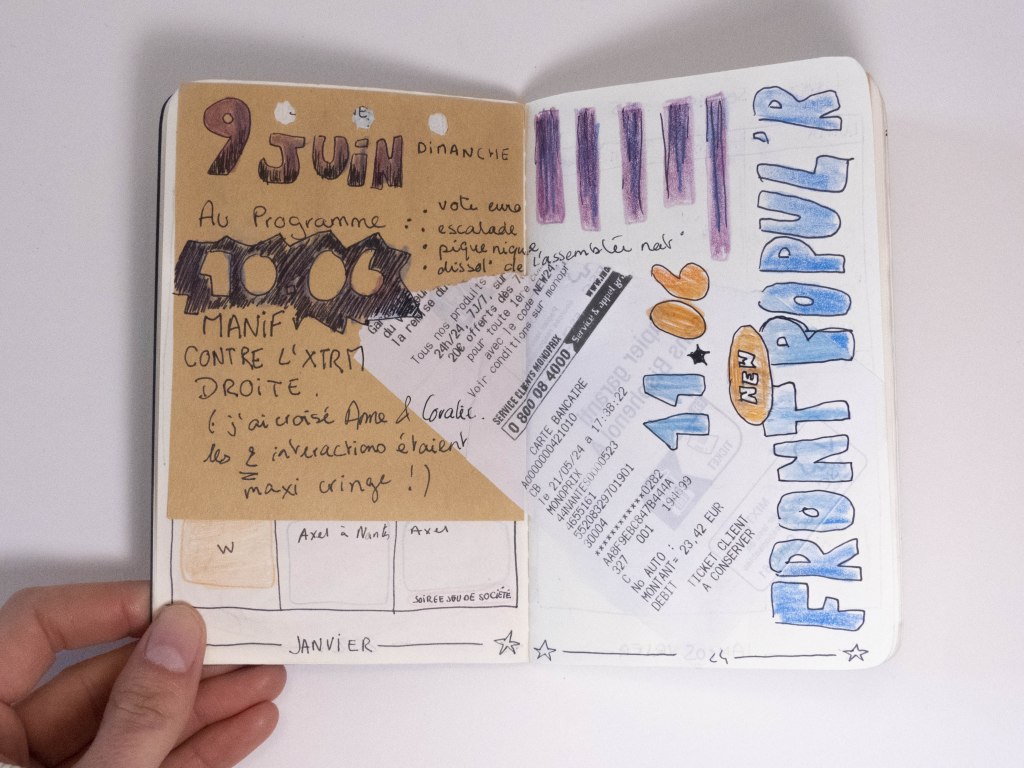 9 JUIN DIMANCHE
Au Programme :
• vote euro
• escalade
• pique nique
• dissol° de l'assemblée nat°
10.06
MANIF
CONTRE L'XTRM
DROITE.
(j'ai croisé Anne & Coralie.
les 2 interactions étaient
maxi cringe !)
W
Axel à Nantes
Axel
SOIREE JEU DE SOCIÉTÉ
JANVIER
Tous nos produits
24h/24, 7J/7, sur
20€ offerts dès
pour toute 1ère
avec le code NEW24
Voir conditions sur monopr
SERVICE CLIENTS MONOPRIX
0 800 08 4000
Service & appel gr
CARTE BANCAIRE
A0000000421010
CB
le 21/05/24 à 17:38:22
MONOPRIX
44NANTES
4655161
55208329701901
30004
************0282
AA8F9EBC847B444A
327 001
C
No AUTO :
MONTANT= 23,42 EUR
DEBIT
TICKET CLIENT
A CONSERVER
11.06
NEW
FRONT POPUL'R
24